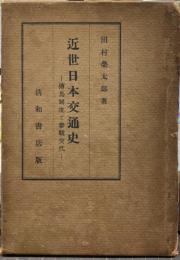 田村榮太郎著
近世日本交通史
―傳馬制度と參覲交代―
清和書店版